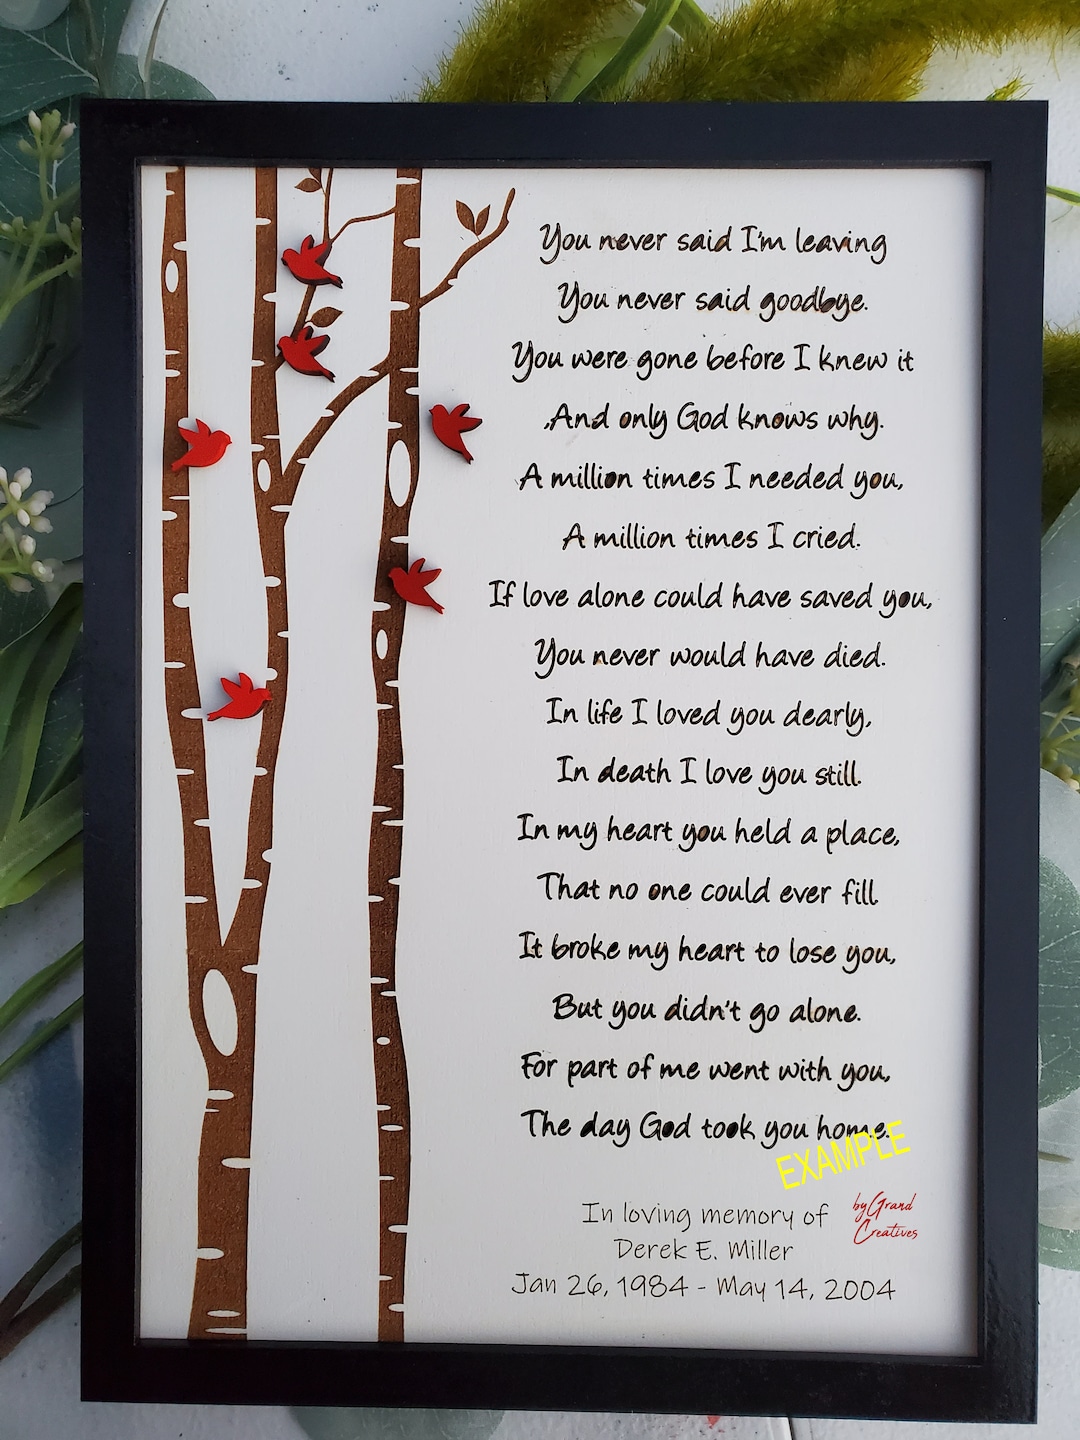 You never said I'm leaving
You never said goodbye.
You were gone before I knew it
,And only God knows why.
A million times I needed you,
A million times I cried.
If love alone could have saved you,
You never would have died.
In life I loved you dearly,
In death I love you still.
In my heart you held a place,
That no one could ever fill.
It broke my heart to lose you,
But you didn't go alone.
For part of me went with you,
The day God took you home.
EXAMPLE
In loving memory of
Derek E. Miller
Jan 26, 1984 - May 14, 2004
by Grand
Creatives